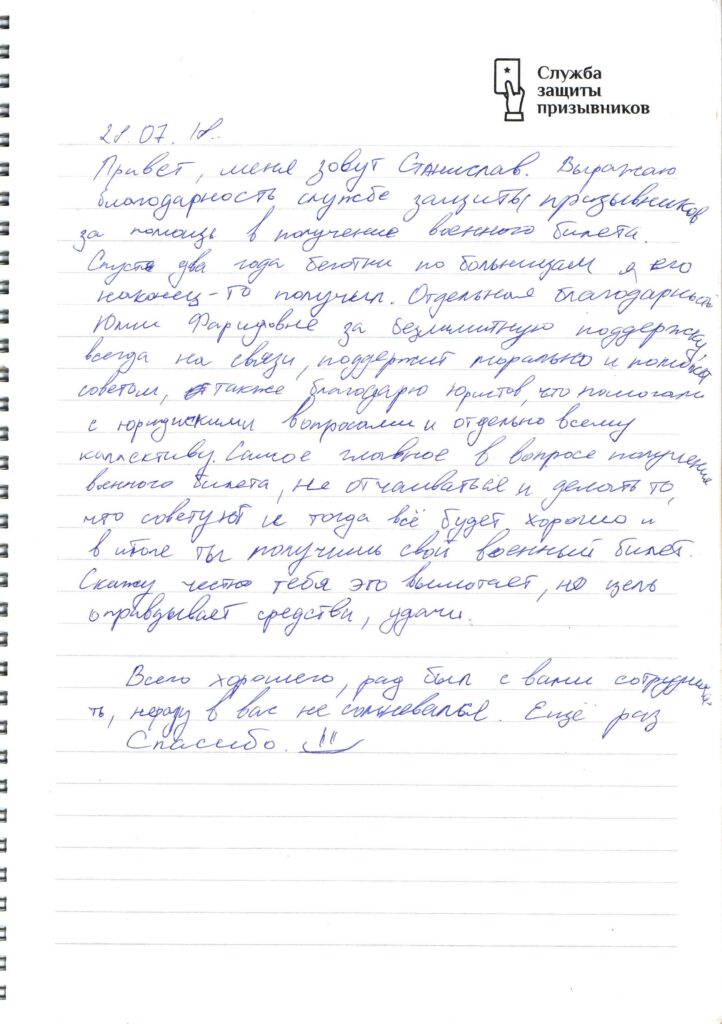 Служба
защиты
призывников
28.07.18.
Привет, меня зовут Станислав. Выражаю
благодарность службе защиты призывников
за помощь в получение военного билета.
Спустя два года беготни по больницам я его
наконец-то получил. Отдельная благодарность
Юлии Фаридовне за безлимитную поддержку,
всегда на связи, поддержит морально и поможет
советом, также благодарю юристов, что помогали
с юридискими вопросами и отдельно всему
каллективу. Самое главное в вопросе получения
военного билета, не отчаиваться и делать то,
что советуют и тогда всё будет хорошо и
в итоге ты получишь свой военный билет.
Скажу честно тебя это вымотает, но цель
оправдывает средства, удачи.
Всего хорошего, рад был с вами сотруднича
ть, неразу в вас не сомневалься. Ещё раз
Спасибо.